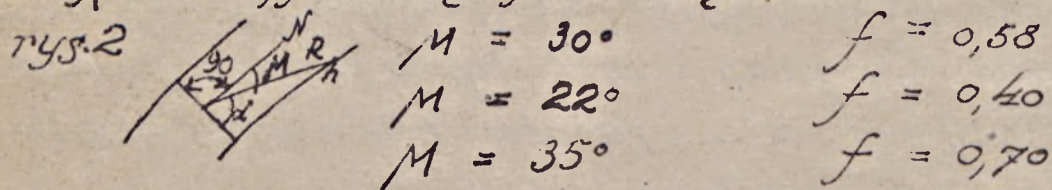 rys. 2 90 N M R h α
M = 30° f = 0,58
M = 22° f = 0,40
M = 35° f = 0,70